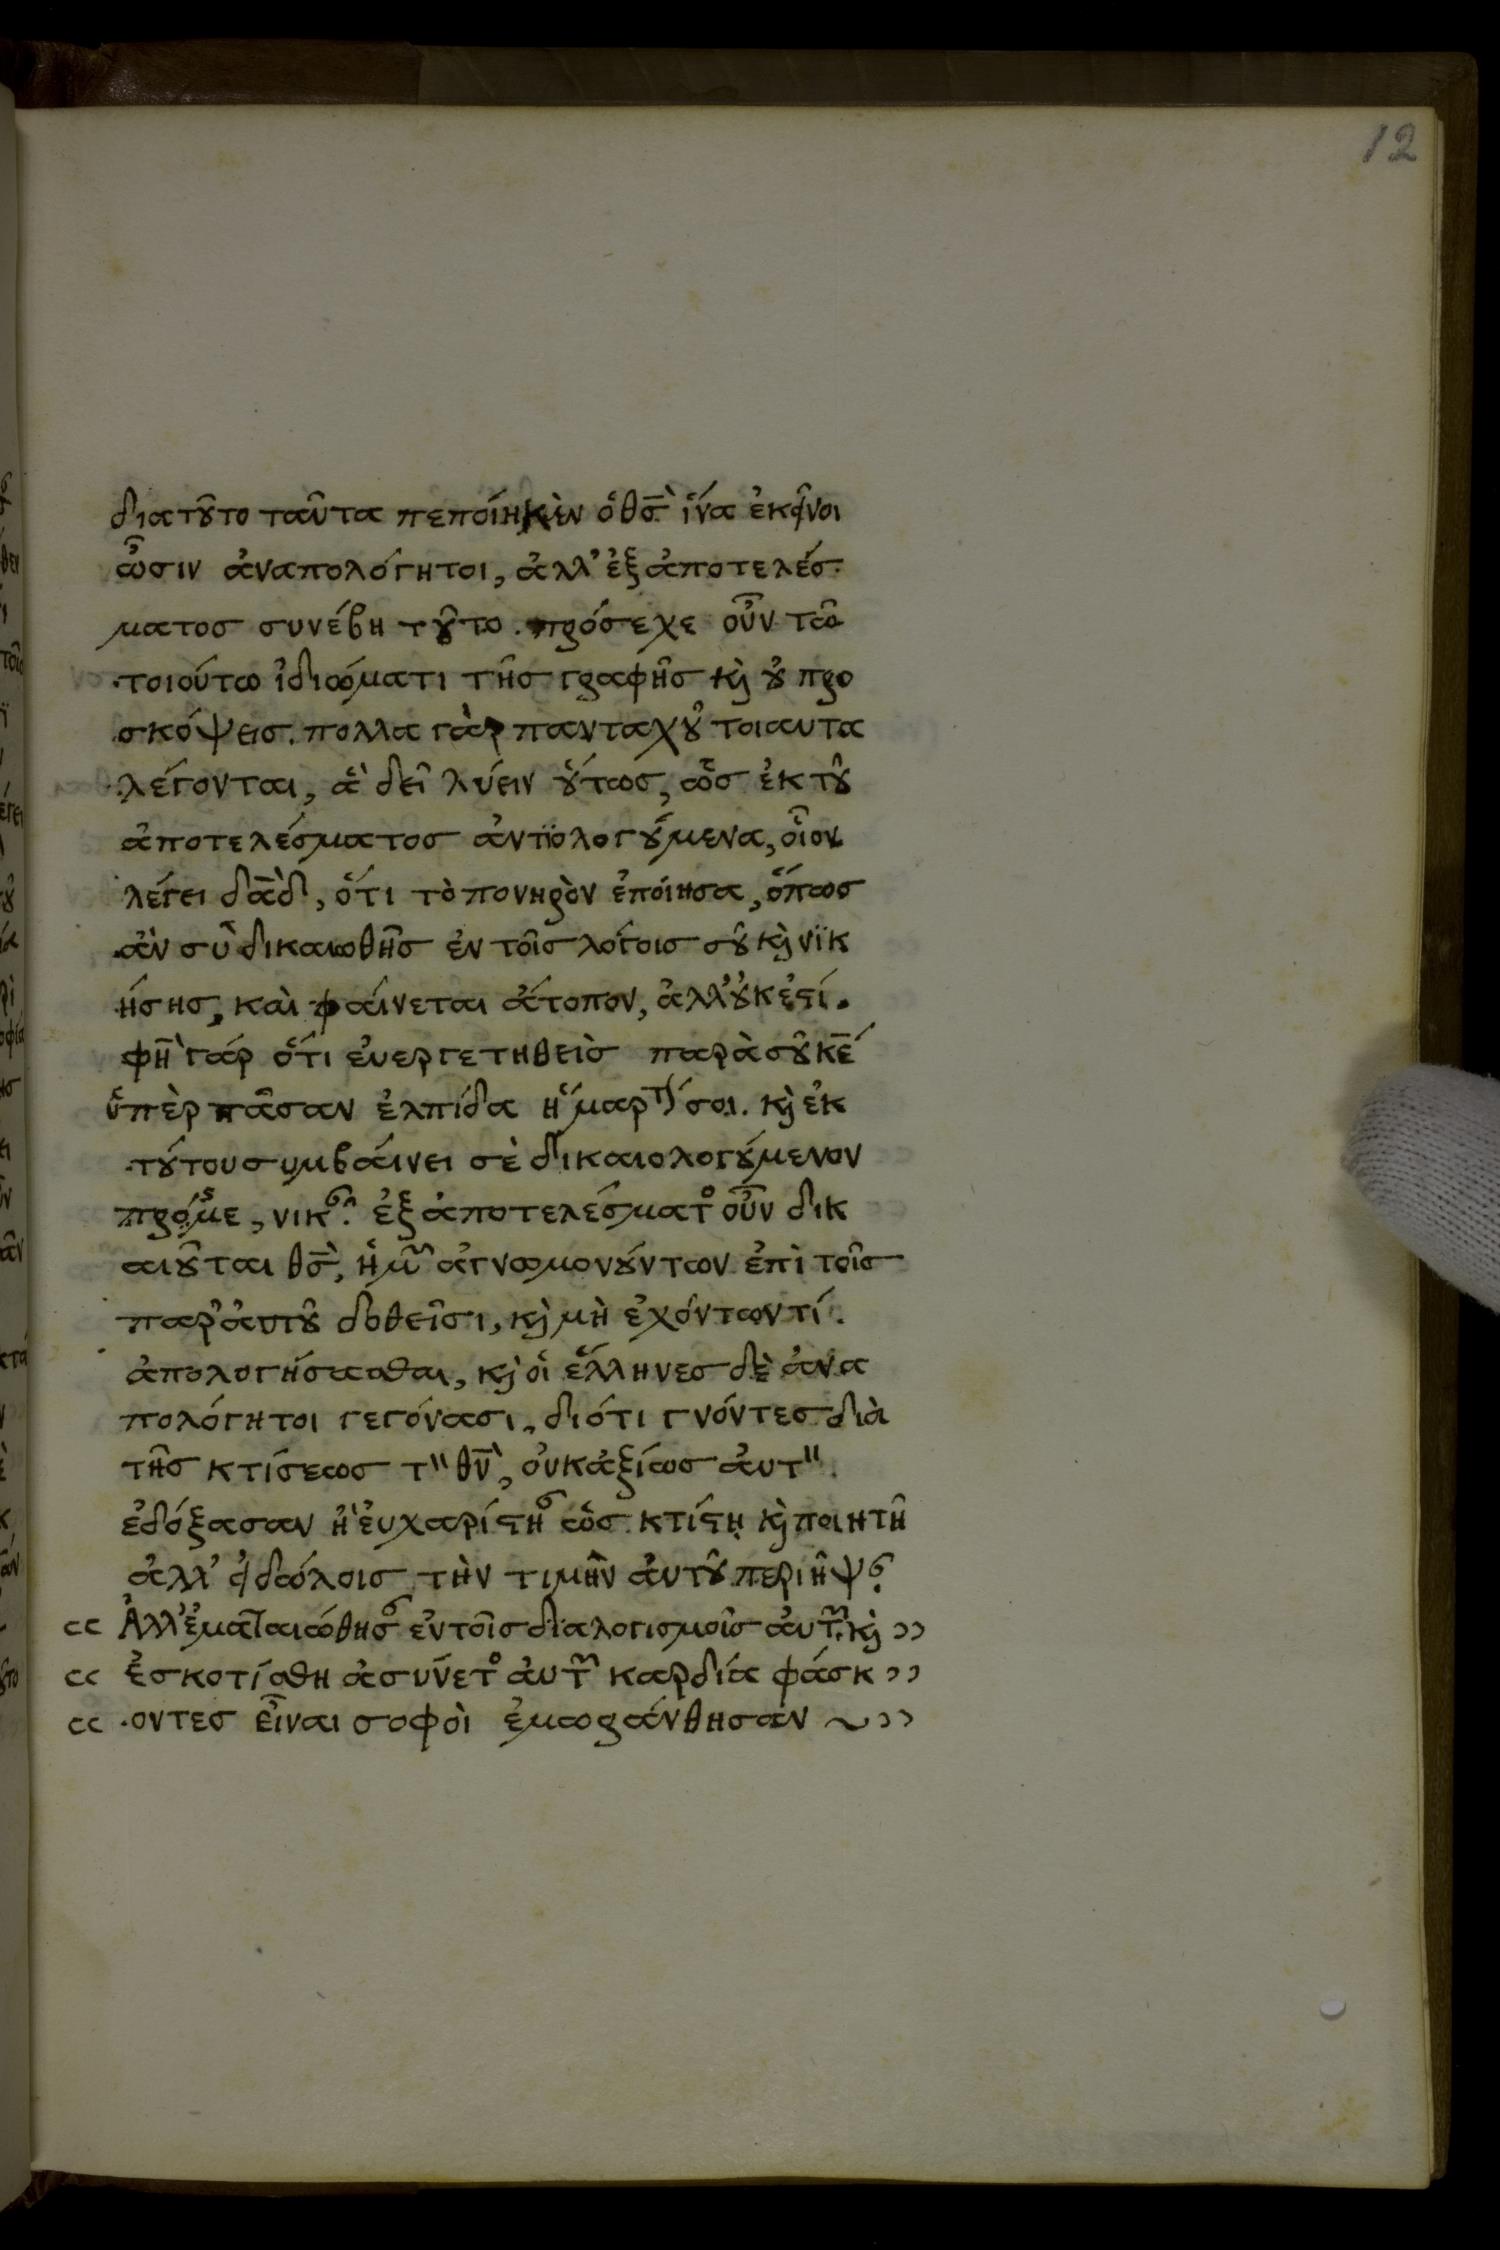 12
διατȣ͂το ταῦτα πεποίηκὲν ὁ θ̅ς̅ ἵνα ἐκεῖνοι
ὦσιν ἀναπολόγητοι, ἀλλ' ἐξ ἀποτελέσ
ματος συνέβη τȣ͂το. πρόσεχε οὖν τῶ
τοιούτω ἰδιώματι τῆς γραφῆς κ̀ ȣ̓ προ
σκόψεις. πολλα γὰρ πανταχȣ͂ τοιαυτα
λέγονται, ἃ δεῖ λύειν ȣ̔́τως, ὡς ἐκ τȣ͂
ἀποτελέσματος ἀντϊολογȣ́μενα, οἷον
λέγει δα̅δ, ὅτι τὸ πονηρὸν ἐποίησα, ὅπως
ἂν σὺ δικαιωθῆς ἐν τοῖς λόγοις σȣ͂ κ̀ νϊκ
ήσης, καὶ φαίνεται ἄτοπον, ἀλλ' ȣ̓κ ἐϛί.
φη̅ γάρ ὅτι ἐυεργετηθεὶς παρὰ σȣ͂ κ̅ε̅
ὑπὲρ πᾶσαν ἐλπίδα ἥμαρτ́ σοι. κ̀ ἐκ
τȣ́του συμβάινει σὲ δικαιολογȣ́μενον
πρόςμε, νικ. ἐξ ἀποτελέσματο οὖν δικ
αιȣ͂ται θ̅ς̅, ἡμ͂ ἀγνωμονȣ́ντων ἐπὶ τοῖς
παρ' ἀυτȣ͂ δοθεῖσι, κ̀ μὴ ἐχόντων τί
ἀπολογήσασθαι, κ̀ οἱ ἕλληνες δὲ ἀνα
πολόγητοι γεγόνασι, διότι γνόντες διὰ
τῆς κτίσεως τ" θ̅ν̅, ȣ̓κ ἀξίως ἀυτ"
ἐδόξασαν ἢ ἐυχαρίϛη ὡς κτίϛη κ̀ ποιητῆ
ἀλλ' εἰδώλοις τὴν τιμὴν ἀυτȣ͂ περιῆψ
cc Ἀλλ' ἐματαιώθησ ἐν τοῖς διαλογισμοῖς ἀυτ͂ κ̀ ››
cc Ἐσκοτίσθη ἀσύνετο ἀυτ͂ καρδία φάσκ ››
cc οντες εἶναι σοφοὶ ἐμωράνθησαν ~ ››